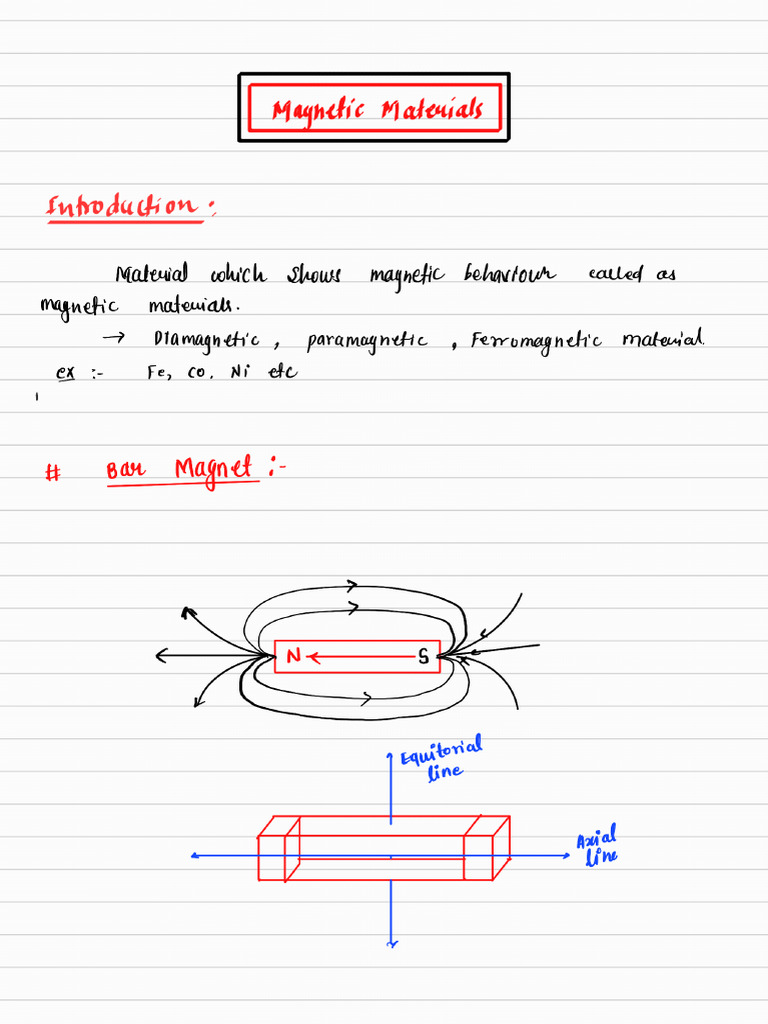 Magnetic Materials
Introduction :
Material which shows magnetic behaviour called as
magnetic materials.
→ Diamagnetic , paramagnetic , Ferromagnetic material.
ex :- Fe, Co, Ni etc
# Bar Magnet :-
N S
Equitorial
line
Axial
line